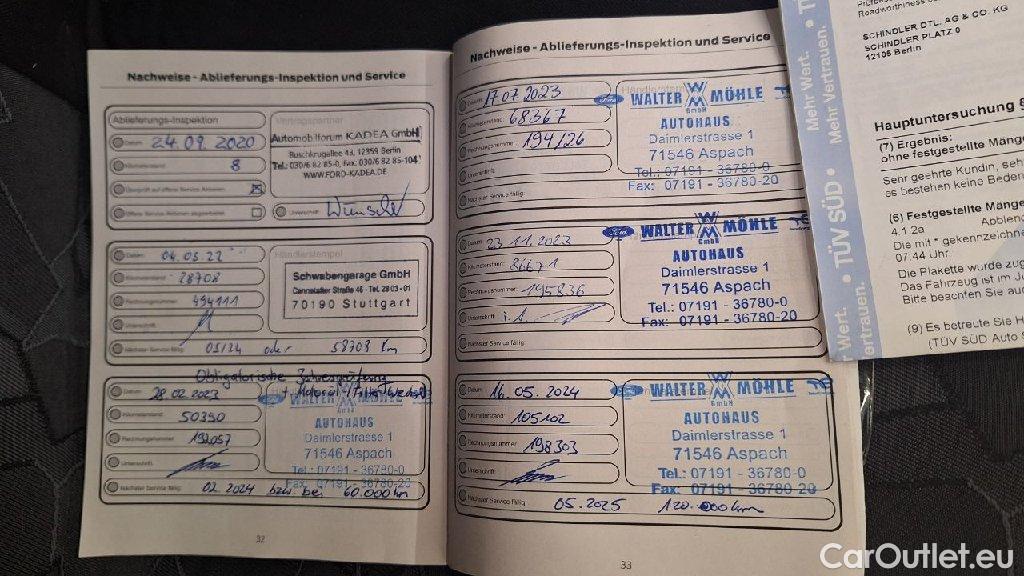 Nachweise - Ablieferungs-Inspektion und Service
Ablieferungs-Inspektion
Vertragspartner
Datum: 24.09.2020
Automobilforum KADEA GmbH
Buschkrugallee 43, 12359 Berlin
Tel.: 030/6 82 85-0, Fax: 030/6 82 85-104
WWW.FORD-KADEA.DE
Kilometerstand: 8
Überprüft auf offene Service Aktionen:
Offene Service Aktionen abgearbeitet:
Unterschrift:
Datum: 04.05.22
Händlerstempel
Kilometerstand: 28708
Schwabengarage GmbH
Cannstatter Straße 46 · Tel. 2803-01
70190 Stuttgart
Rechnungsnummer: 494111
Unterschrift:
Nächster Service fällig: 05/24 oder 58708 Km
Obligatorische Jahresprüfung
+ Motoröl-/Filterwechsel
Datum: 28.02.2023
WALTER MÖHLE
GmbH
Kilometerstand: 50390
AUTOHAUS
Rechnungsnummer: 192057
Daimlerstrasse 1
71546 Aspach
Unterschrift:
Tel.: 07191 - 36780-0
Fax: 07191 - 36780-20
Nächster Service fällig: 02.2024 bzw bei 60.000km
32
Nachweise - Ablieferungs-Inspektion und Service
Datum: 17.07.2023
WALTER MÖHLE
GmbH
Kilometerstand: 68367
AUTOHAUS
Rechnungsnummer: 194126
Daimlerstrasse 1
71546 Aspach
Unterschrift:
Tel.: 07191 - 36780-0
Fax: 07191 - 36780-20
Nächster Service fällig:
Datum: 23.11.2023
WALTER MÖHLE
GmbH
Kilometerstand: 86671
AUTOHAUS
Rechnungsnummer: 195836
Daimlerstrasse 1
71546 Aspach
Unterschrift: i.A.
Tel.: 07191 - 36780-0
Fax: 07191 - 36780-20
Nächster Service fällig:
Datum: 16.05.2024
WALTER MÖHLE
GmbH
Kilometerstand: 105102
AUTOHAUS
Rechnungsnummer: 198303
Daimlerstrasse 1
71546 Aspach
Unterschrift:
Tel.: 07191 - 36780-0
Fax: 07191 - 36780-20
Nächster Service fällig: 05.2025 120.000km
33
Mehr Wert.
Mehr Vertrauen.
TÜV SÜD
SCHINDLER DTL. AG & CO. KG
SCHINDLER PLATZ
12105 Berlin
Hauptuntersuchung
(7) Ergebnis:
ohne festgestellte Mänge
Sehr geehrte Kundin, seh
es bestehen keine Beden
(6) Festgestellte Mänge
4.1.2a
Die mit * gekennzeichne
07:44 Uhr
Die Plakette wurde zug
Das Fahrzeug ist im Ja
Bitte beachten Sie auc
(9) Es betreute Sie H
(TÜV SÜD Auto S
CarOutlet.eu